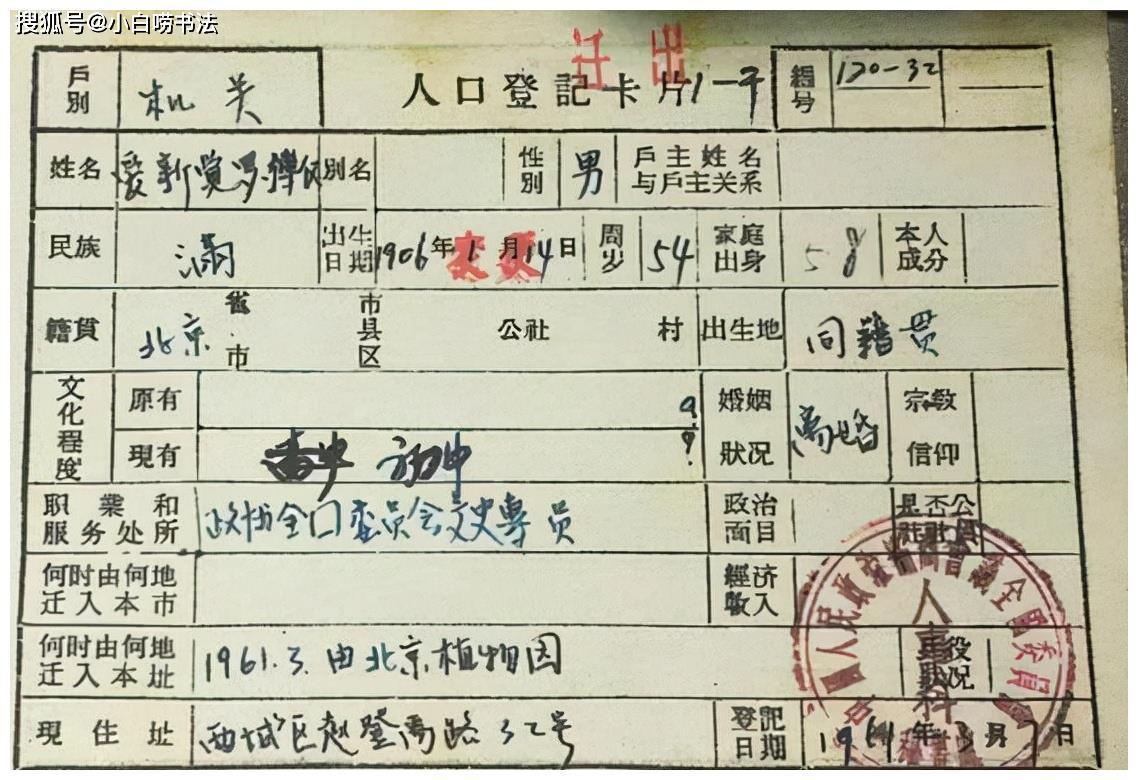 搜狐号@小白唠书法
迁出
戶別 机关 人口登記卡片 1-9 編号 120-32
姓名 爱新觉罗 別名 性別 男 戶主姓名与戶主关系
民族 滿 出生日期 1906年1月14日 变更 周岁 54 家庭出身 58 本人成分
籍貫 北京 省市 市县区 公社 村 出生地 同籍贯
文化程度 原有 婚姻狀况 宗教信仰
現有 初中
职業和服务处所 政协全国委员会文史專员 政治面目 是否公社社員
何时由何地迁入本市 經济收入
何时由何地迁入本址 1961.3.由北京植物园 兵役狀况
現住址 西城区赵登禹路32号 登記日期 年 月 日
人事科